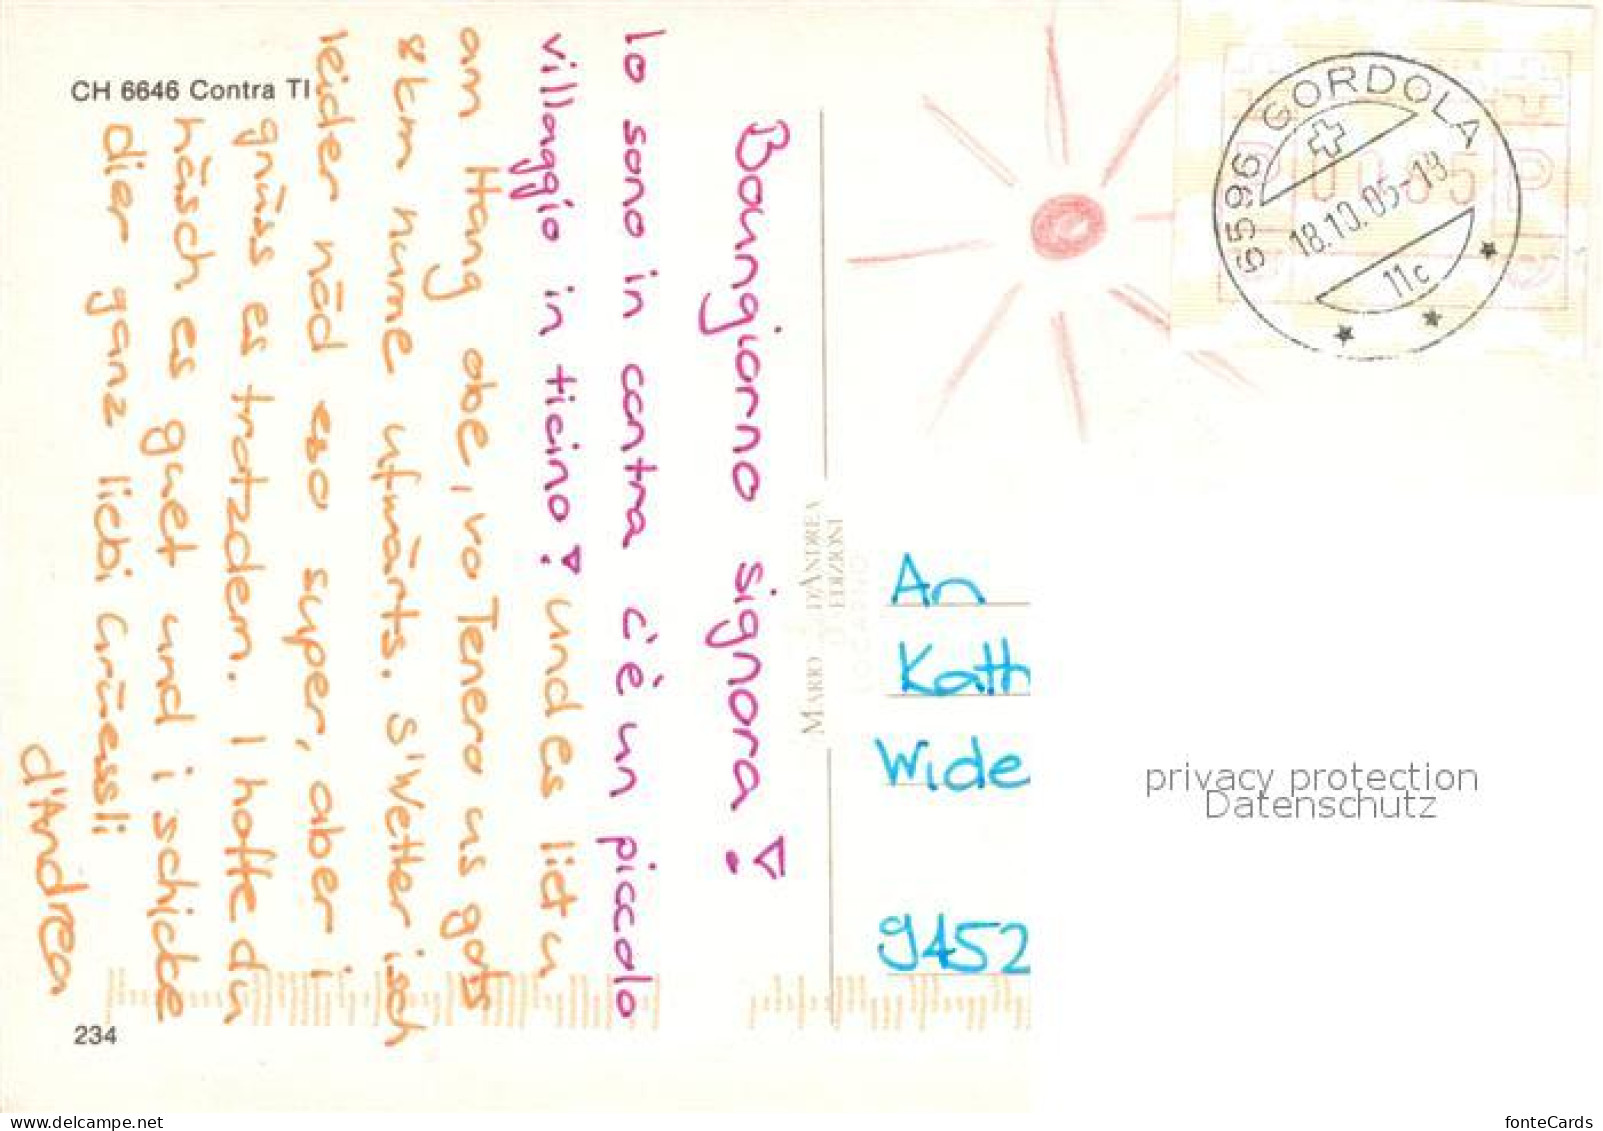 CH 6646 Contra TI
Boungiorno signora!
Io sono in contra c'è un piccolo
villaggio in ticino! und es liet u
am Hang obe, vo Tenero us gots
8km nume ufwärts. S'Wetter isch
leider nöd eso super, aber i
gnüss es trotzdem. I hoffe du
häsch es guet und i schicke
dier ganz liebi Grüessli
d'Andrea
234
MARIO D'ANDREA
EDIZIONI
LOCARNO
6596 GORDOLA
18.10.05-18
11c
An
Kath
Wide
9452
privacy protection
Datenschutz
www.delcampe.net
fonteCards